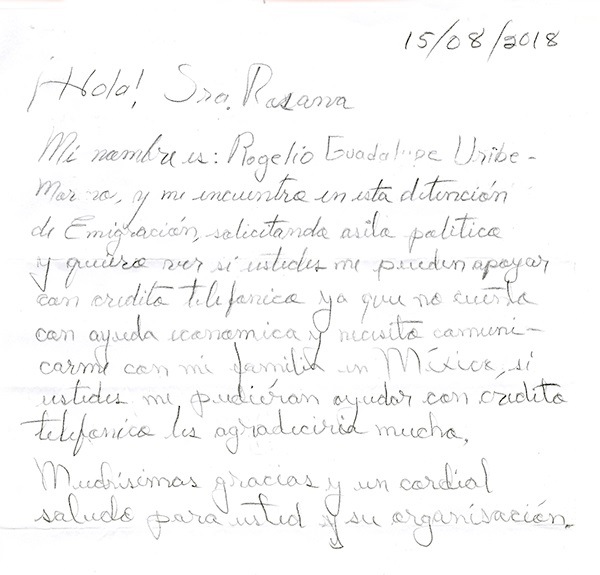 15/08/2018
¡Hola! Sra. Rosanna
Mi nombre es: Rogelio Guadalupe Uribe-
y me encuentro en esta detención
de Emigración, solicitando asilo político
y quiero ver si ustedes me pueden apoyar
con credito telefonico ya que no cuento
con ayuda economica y necesito comuni-
carme con mi familia en México, si
ustedes me pudieran ayudar con crédito
telefonico les agradeciria mucho,
Muchísimas gracias y un cordial
saludo para usted y su organisación.